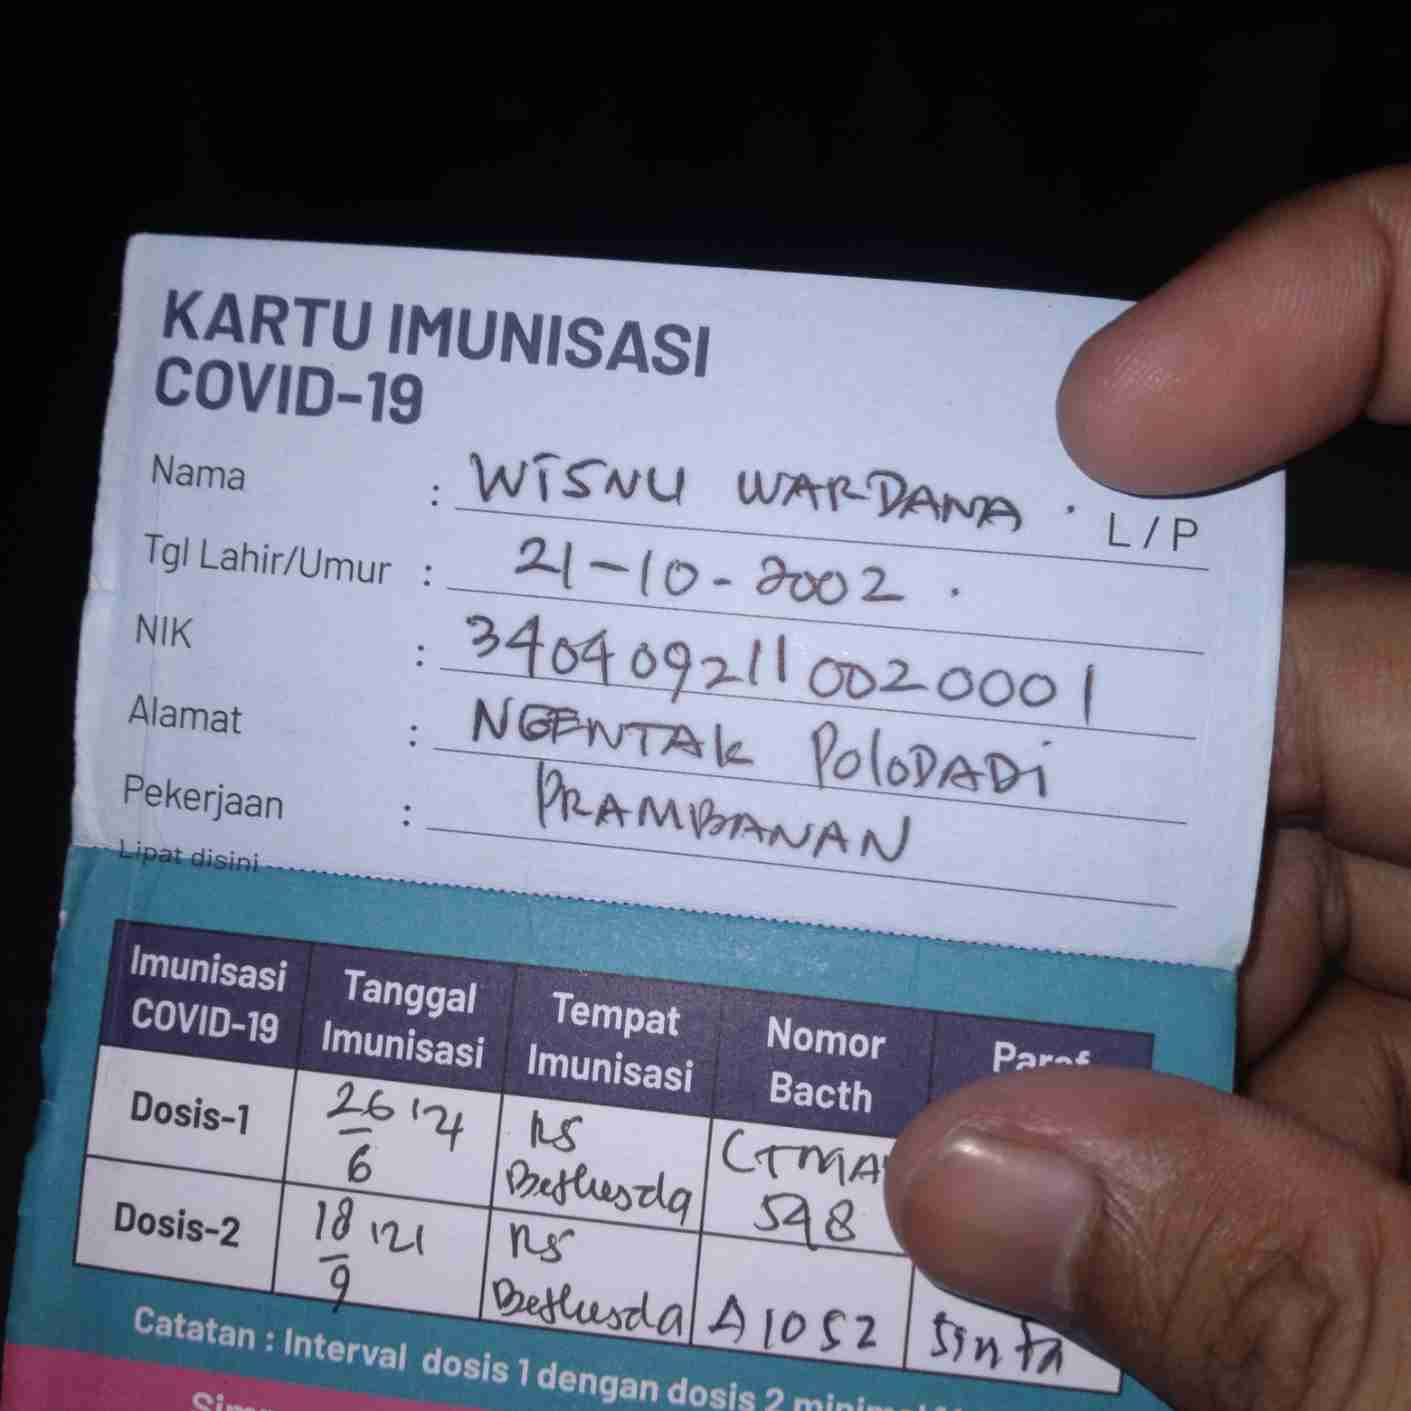 KARTU IMUNISASI
COVID-19
Nama : WISNU WARDANA . L / P
Tgl Lahir/Umur : 21-10-2002 .
NIK : 3404092110020001
Alamat : NGENTAK POLODADI
Pekerjaan : PRAMBANAN
Lipat disini
Imunisasi COVID-19 Tanggal Imunisasi Tempat Imunisasi Nomor Bacth Paraf
Dosis-1 26/6 '21 RS Bethesda CTMAV 598
Dosis-2 18/9 '21 RS Bethesda A1052 Sinta
Catatan : Interval dosis 1 dengan dosis 2